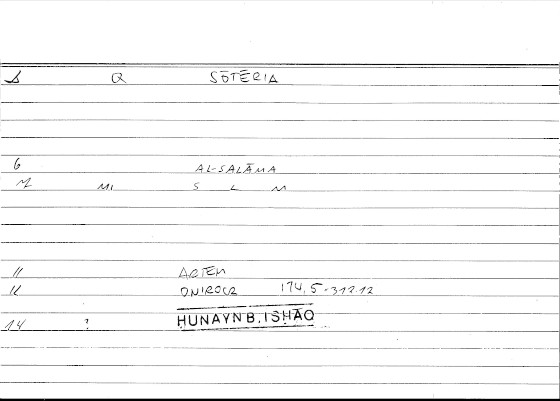 Q SŌTĒRIA
6 AL-SALĀMA
MI S L M
11 ARTEM
ONIROCR 174,5-312.12
14 ? ḤUNAYN B. ISḤĀQ